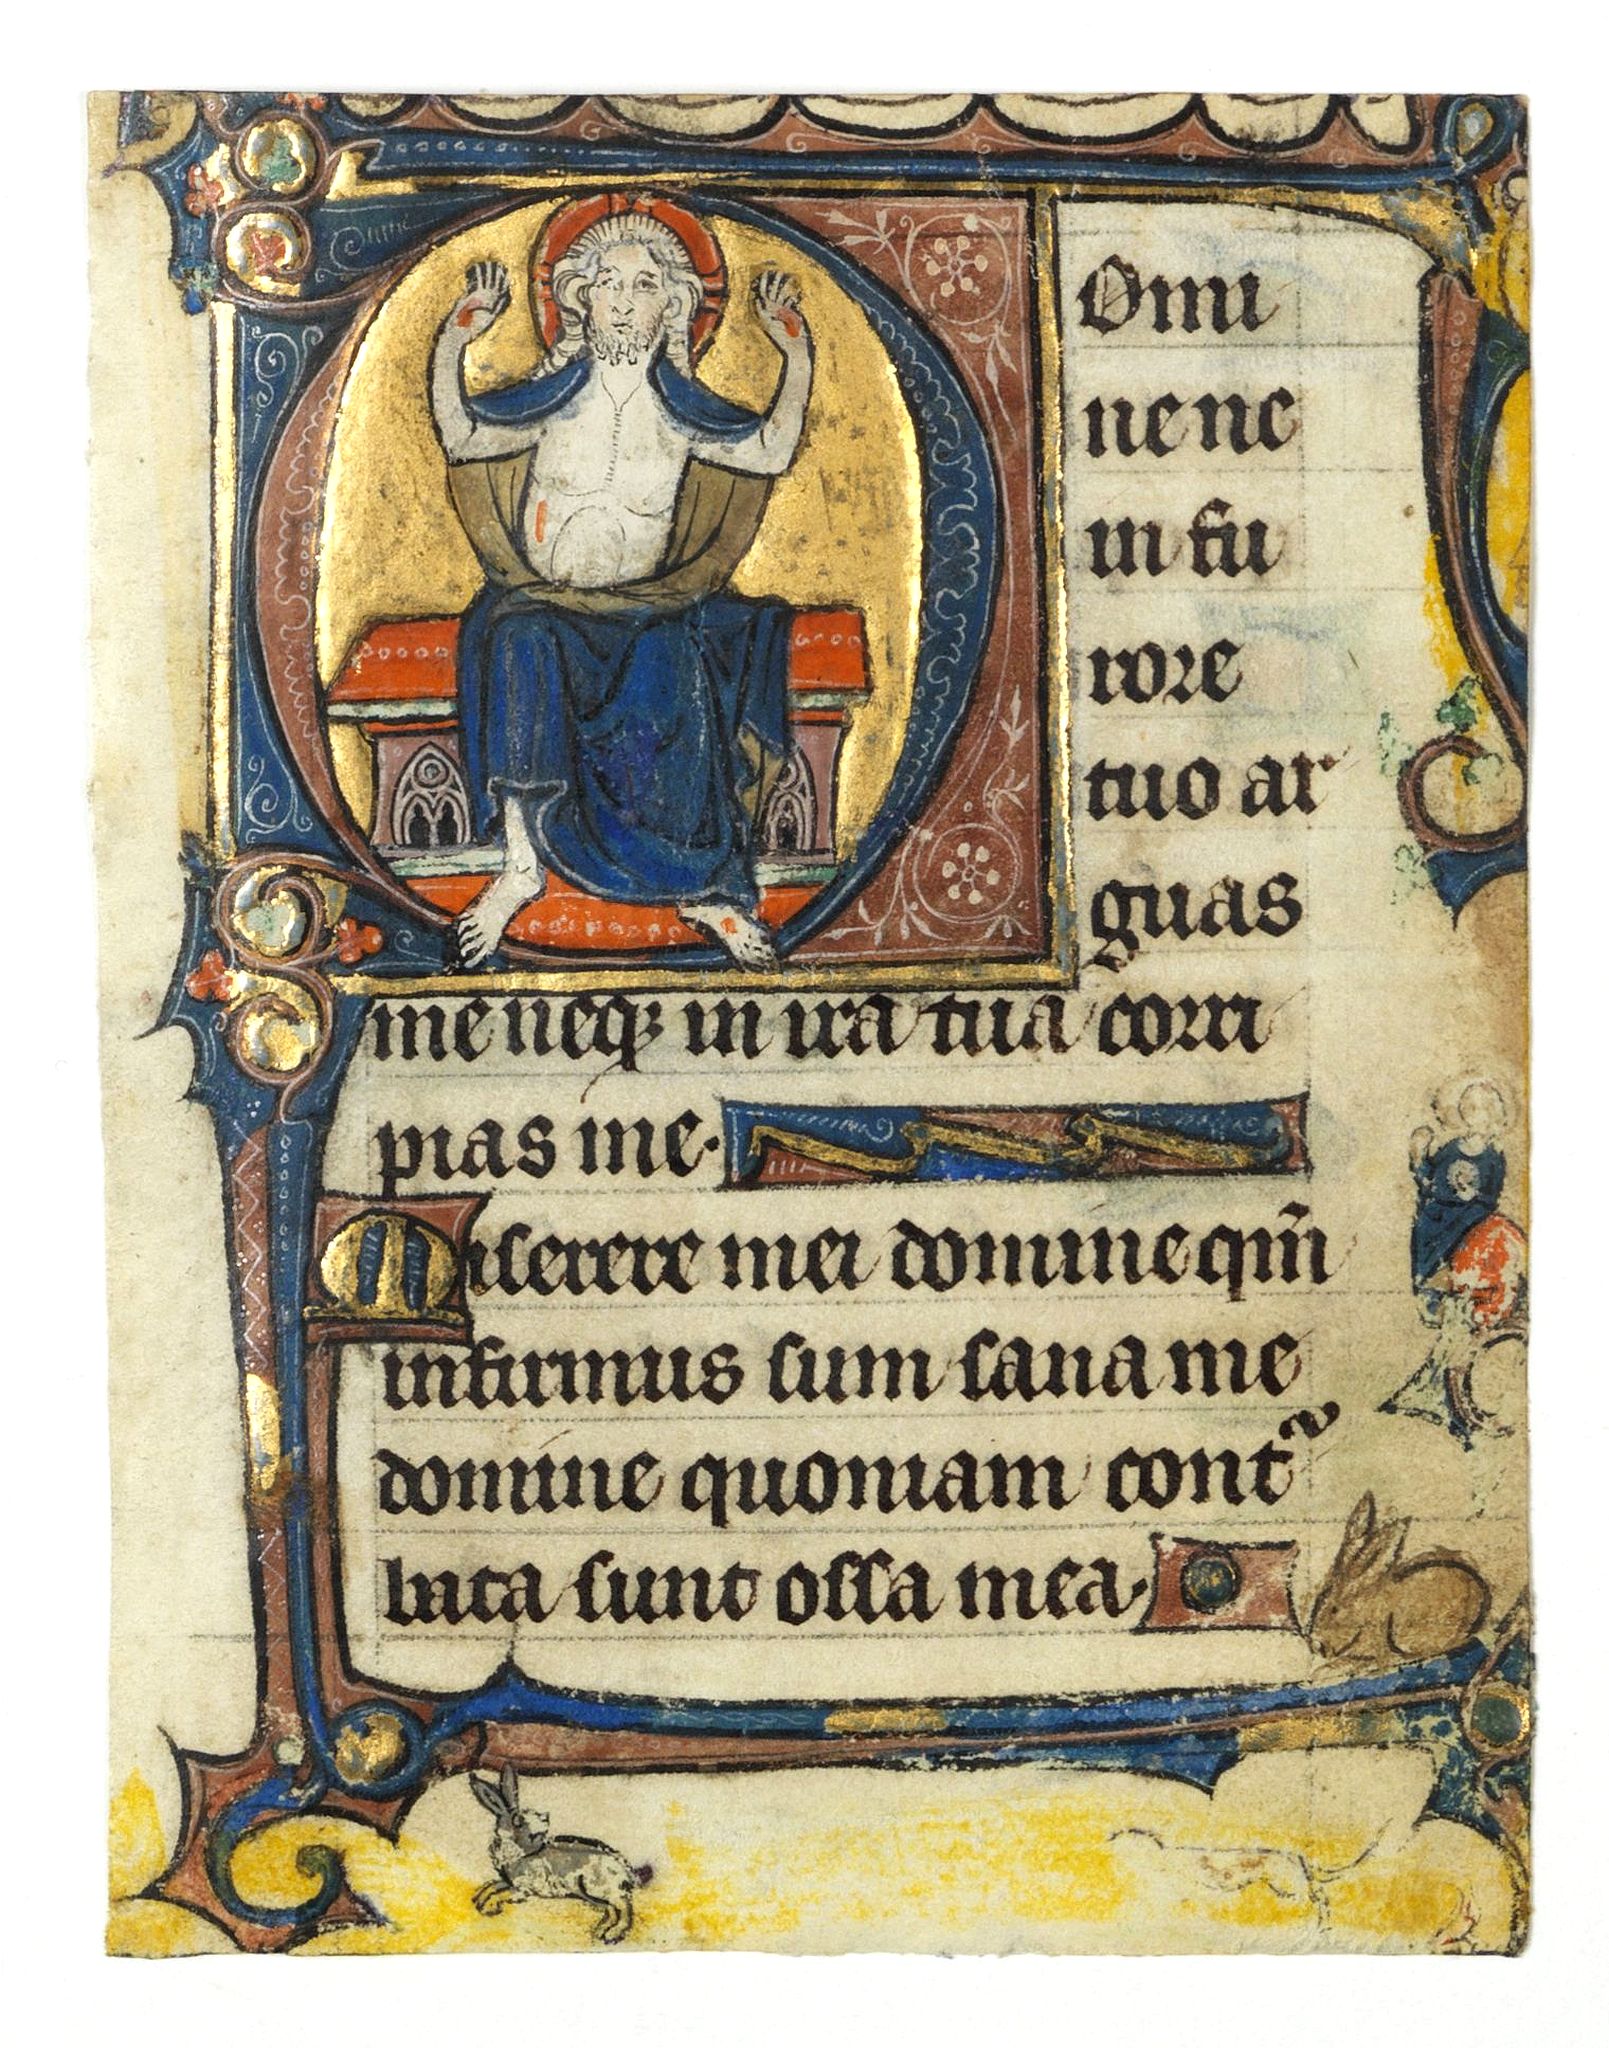 Domi
ne ne
in fu
rore
tuo ar
guas
me neqꝫ in ira tua corri
pias me·
Miserere mei domine qm̄
infirmus sum sana me
domine quoniam contᷣ
bata sunt ossa mea·